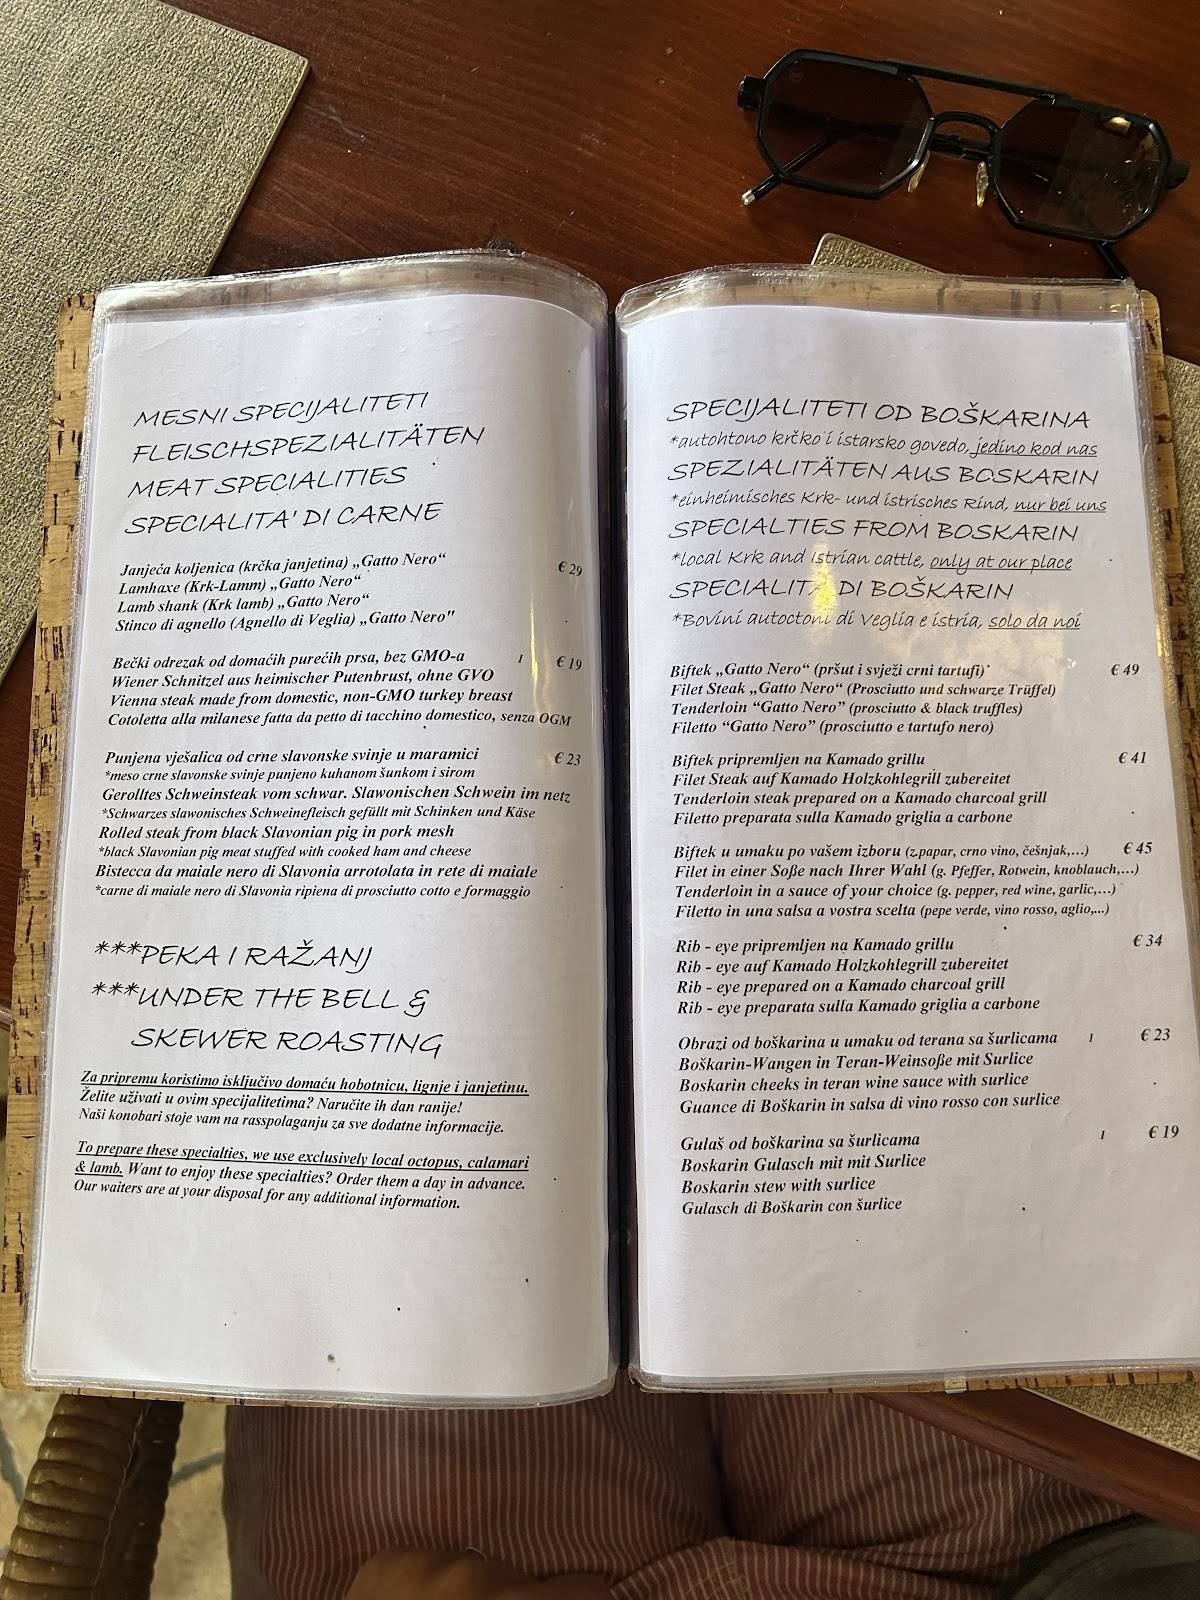 MESNI SPECIJALITETI
FLEISCHSPEZIALITÄTEN
MEAT SPECIALITIES
SPECIALITA' DI CARNE
Janjeća koljenica (krčka janjetina) „Gatto Nero“ € 29
Lamhaxe (Krk-Lamm) „Gatto Nero“
Lamb shank (Krk lamb) „Gatto Nero“
Stinco di agnello (Agnello di Veglia) „Gatto Nero"
Bečki odrezak od domaćih purećih prsa, bez GMO-a 1 € 19
Wiener Schnitzel aus heimischer Putenbrust, ohne GVO
Vienna steak made from domestic, non-GMO turkey breast
Cotoletta alla milanese fatta da petto di tacchino domestico, senza OGM
Punjena vješalica od crne slavonske svinje u maramici € 23
*meso crne slavonske svinje punjeno kuhanom šunkom i sirom
Gerolltes Schweinsteak vom schwar. Slawonischen Schwein im netz
*Schwarzes slawonisches Schweinefleisch gefüllt mit Schinken und Käse
Rolled steak from black Slavonian pig in pork mesh
*black Slavonian pig meat stuffed with cooked ham and cheese
Bistecca da maiale nero di Slavonia arrotolata in rete di maiale
*carne di maiale nero di Slavonia ripiena di prosciutto cotto e formaggio
***PEKA I RAŽANJ
***UNDER THE BELL &
SKEWER ROASTING
Za pripremu koristimo isključivo domaću hobotnicu, lignje i janjetinu.
Želite uživati u ovim specijalitetima? Naručite ih dan ranije!
Naši konobari stoje vam na rasspolaganju za sve dodatne informacije.
To prepare these specialties, we use exclusively local octopus, calamari
& lamb. Want to enjoy these specialties? Order them a day in advance.
Our waiters are at your disposal for any additional information.
SPECIJALITETI OD BOŠKARINA
*autohtono krčko i istarsko govedo, jedino kod nas
SPEZIALITÄTEN AUS BOSKARIN
*einheimisches Krk- und istrisches Rind, nur bei uns
SPECIALTIES FROM BOSKARIN
*local Krk and Istrian cattle, only at our place
SPECIALITA' DI BOŠKARIN
*Bovini autoctoni di Veglia e istria, solo da noi
Biftek „Gatto Nero“ (pršut i svježi crni tartufi)* € 49
Filet Steak „Gatto Nero“ (Prosciutto und schwarze Trüffel)
Tenderloin “Gatto Nero” (prosciutto & black truffles)
Filetto “Gatto Nero” (prosciutto e tartufo nero)
Biftek pripremljen na Kamado grillu € 41
Filet Steak auf Kamado Holzkohlegrill zubereitet
Tenderloin steak prepared on a Kamado charcoal grill
Filetto preparata sulla Kamado griglia a carbone
Biftek u umaku po vašem izboru (z.papar, crno vino, češnjak,…) € 45
Filet in einer Soße nach Ihrer Wahl (g. Pfeffer, Rotwein, knoblauch,…)
Tenderloin in a sauce of your choice (g. pepper, red wine, garlic,…)
Filetto in una salsa a vostra scelta (pepe verde, vino rosso, aglio,...)
Rib - eye pripremljen na Kamado grillu € 34
Rib - eye auf Kamado Holzkohlegrill zubereitet
Rib - eye prepared on a Kamado charcoal grill
Rib - eye preparata sulla Kamado griglia a carbone
Obrazi od boškarina u umaku od terana sa šurlicama 1 € 23
Boškarin-Wangen in Teran-Weinsoße mit Surlice
Boskarin cheeks in teran wine sauce with surlice
Guance di Boškarin in salsa di vino rosso con surlice
Gulaš od boškarina sa šurlicama 1 € 19
Boskarin Gulasch mit mit Surlice
Boskarin stew with surlice
Gulasch di Boškarin con šurlice